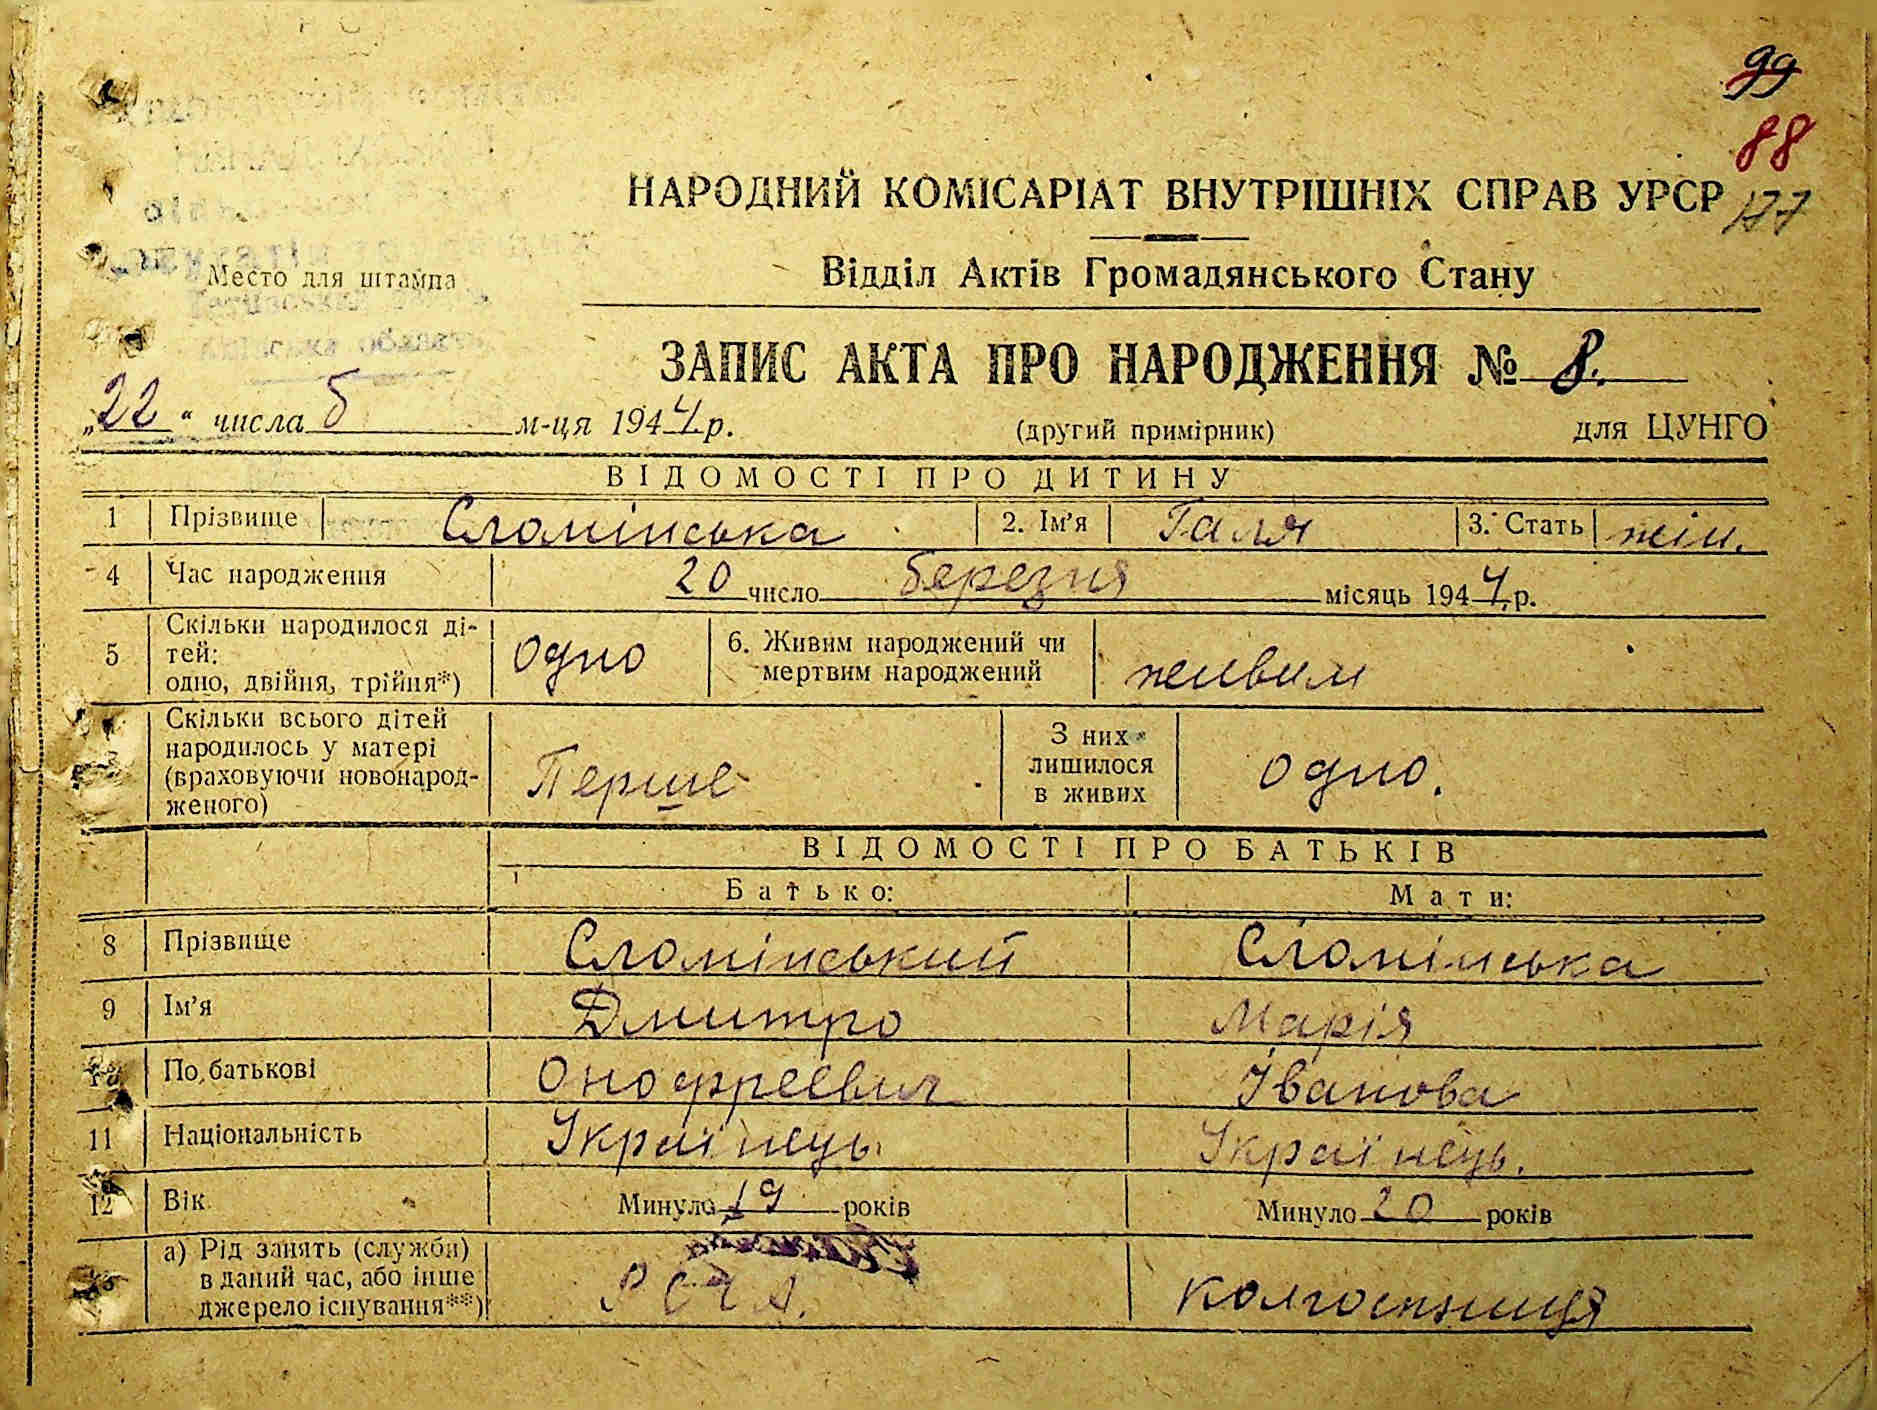 99
88
177
НАРОДНИЙ КОМІСАРІАТ ВНУТРІШНІХ СПРАВ УРСР
Место для штампа
Відділ Актів Громадянського Стану
ЗАПИС АКТА ПРО НАРОДЖЕННЯ № 8.
„22“ числа 5 м-ця 1944 р. (другий примірник) для ЦУНГО
ВІДОМОСТІ ПРО ДИТИНУ
1 Прізвище Сломінська 2. Ім’я Галя 3. Стать жін.
4 Час народження 20 число березня місяць 1944 р.
5 Скільки народилося ді-
тей:
одно, двійня, трійня*) одно 6. Живим народжений чи
мертвим народжений живим
Скільки всього дітей
народилось у матері
(враховуючи новонарод-
женого) Перше З них
лишилося
в живих одно.
ВІДОМОСТІ ПРО БАТЬКІВ
Батько: Мати:
8 Прізвище Сломінський Сломінська
9 Ім’я Дмитро Марія
10 По батькові Онофреєвич Іванова
11 Національність Українець Українець.
12 Вік Минуло 19 років Минуло 20 років
13 а) Рід занять (служби)
в даний час, або інше
джерело існування**) РСЧА. колгоспниця